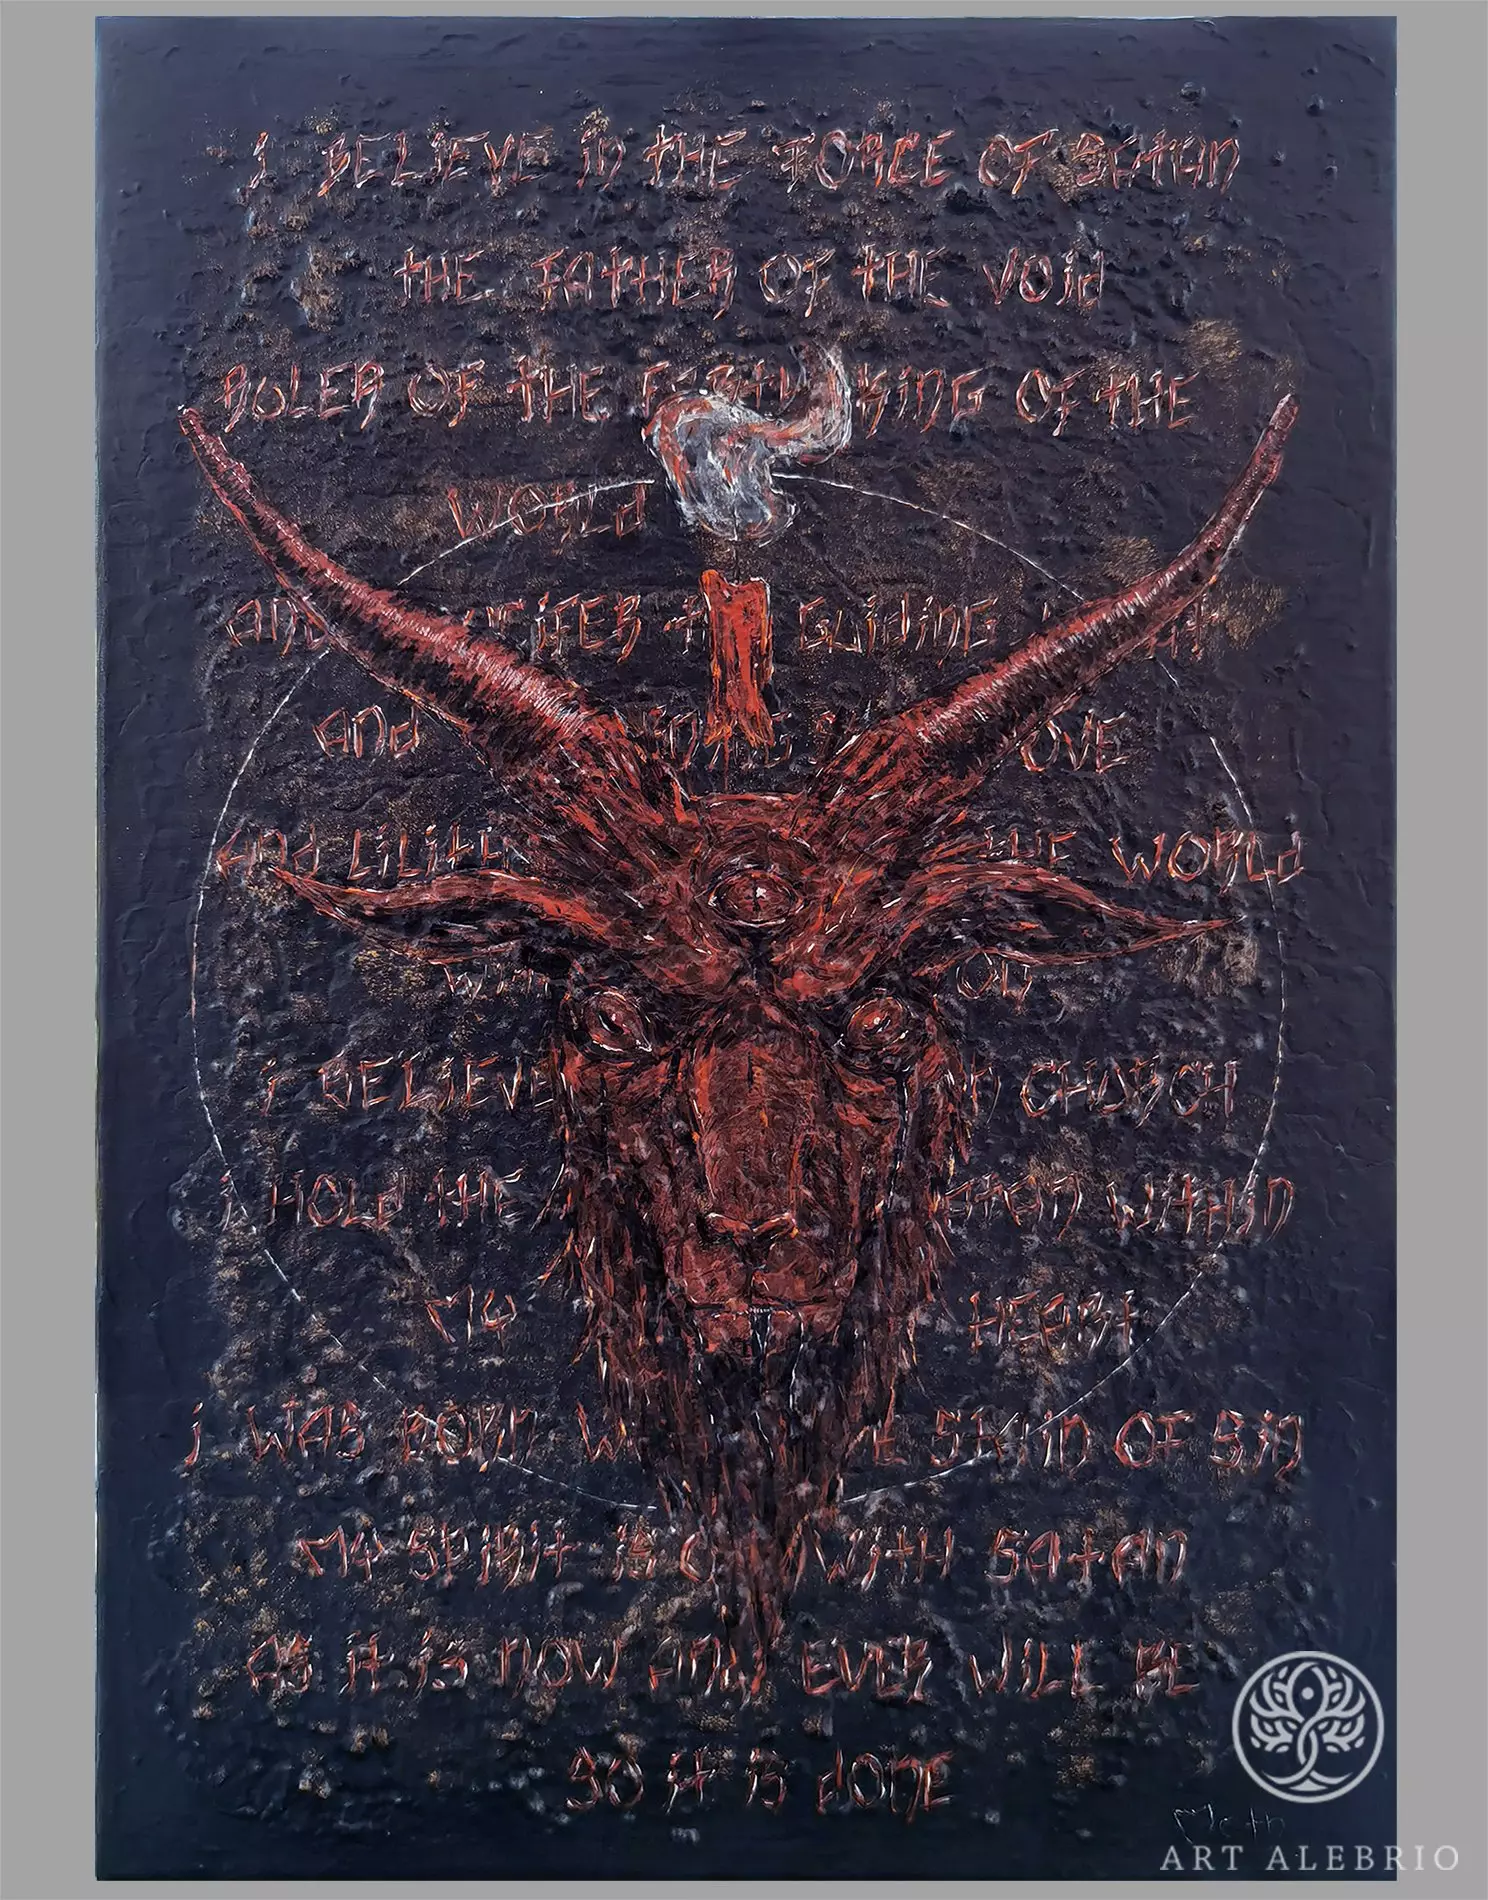 i BELiEVE in tHE FORCE OF SAtAn
tHE FAtHER OF tHE VOid
RULER OF tHE KinG OF tHE
WORLd
And tHE GUidinG
And OVE
And LiLitH tHE WORLd
i BELiEVE CHURCH
i HOLd tHE WitHin
MY HEARt
i WAS BORn StAin OF Sin
MY SPiRit iS WitH SAtAn
AS it iS nOW And EVER WiLL BE
SO it iS dOnE
ART ALEBRIO